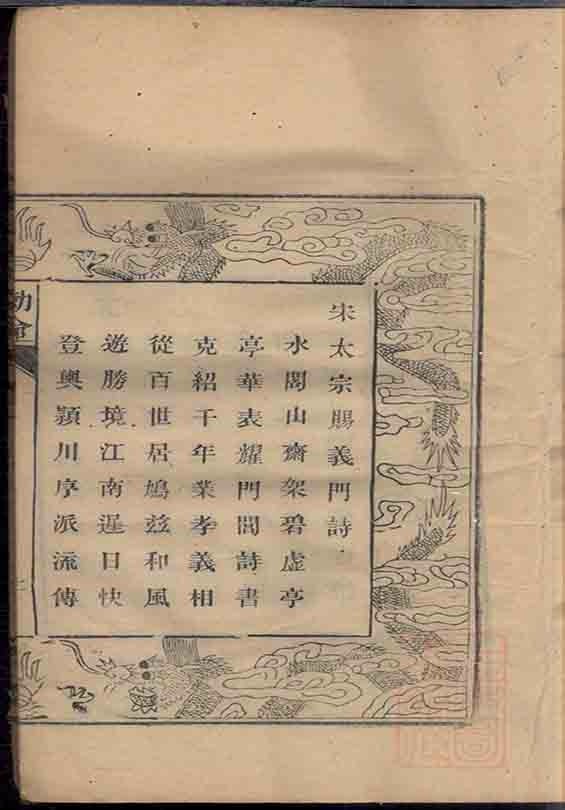 宋太宗賜義門詩
水閣山齋架碧虛亭
亭華表耀門閭詩書
克紹千年業孝義相
從百世居鳩兹和風
遊勝境江南遲日快
登輿頴川序派流傳